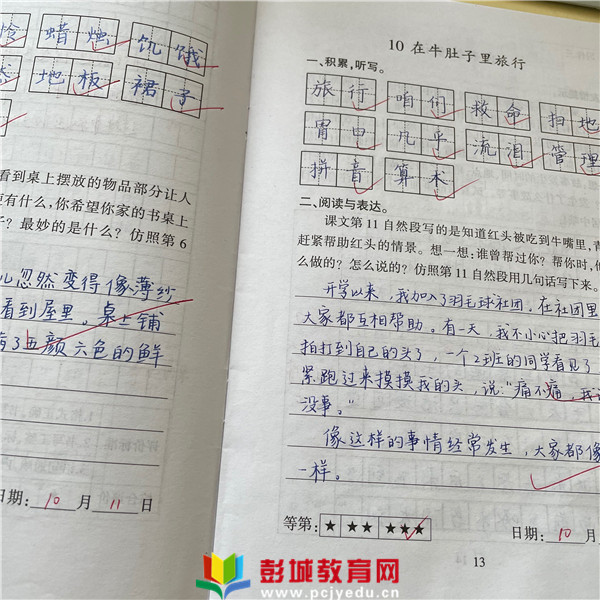 蜡烛 饥饿
地板 裙子
看到桌上摆放的物品部分让人
有什么,你希望你家的书桌上
?最妙的是什么?仿照第6
儿忽然变得像薄纱
看到屋里。桌上铺
五颜六色的鲜
日期:10月11日
10 在牛肚子里旅行
一、积累,听写。
旅行 咱们 救命 扫地
胃田 几乎 流泪 管理
拼音 算术
二、阅读与表达。
课文第11自然段写的是知道红头被吃到牛嘴里,青
赶紧帮助红头的情景。想一想:谁曾帮过你?帮你时,他
么做的?怎么说的?仿照第11自然段用几句话写下来。
开学以来,我加入了羽毛球社团,在社团里
大家都互相帮助。有一天,我不小心把羽毛
拍打到自己的头了,一个2班的同学看见了
紧跑过来摸摸我的头,说:“痛不痛,我说
没事。”
像这样的事情经常发生,大家都像
一样。
等第:★ ★★ ★★★
日期:10月
13
彭城教育网
www.pcjyedu.cn